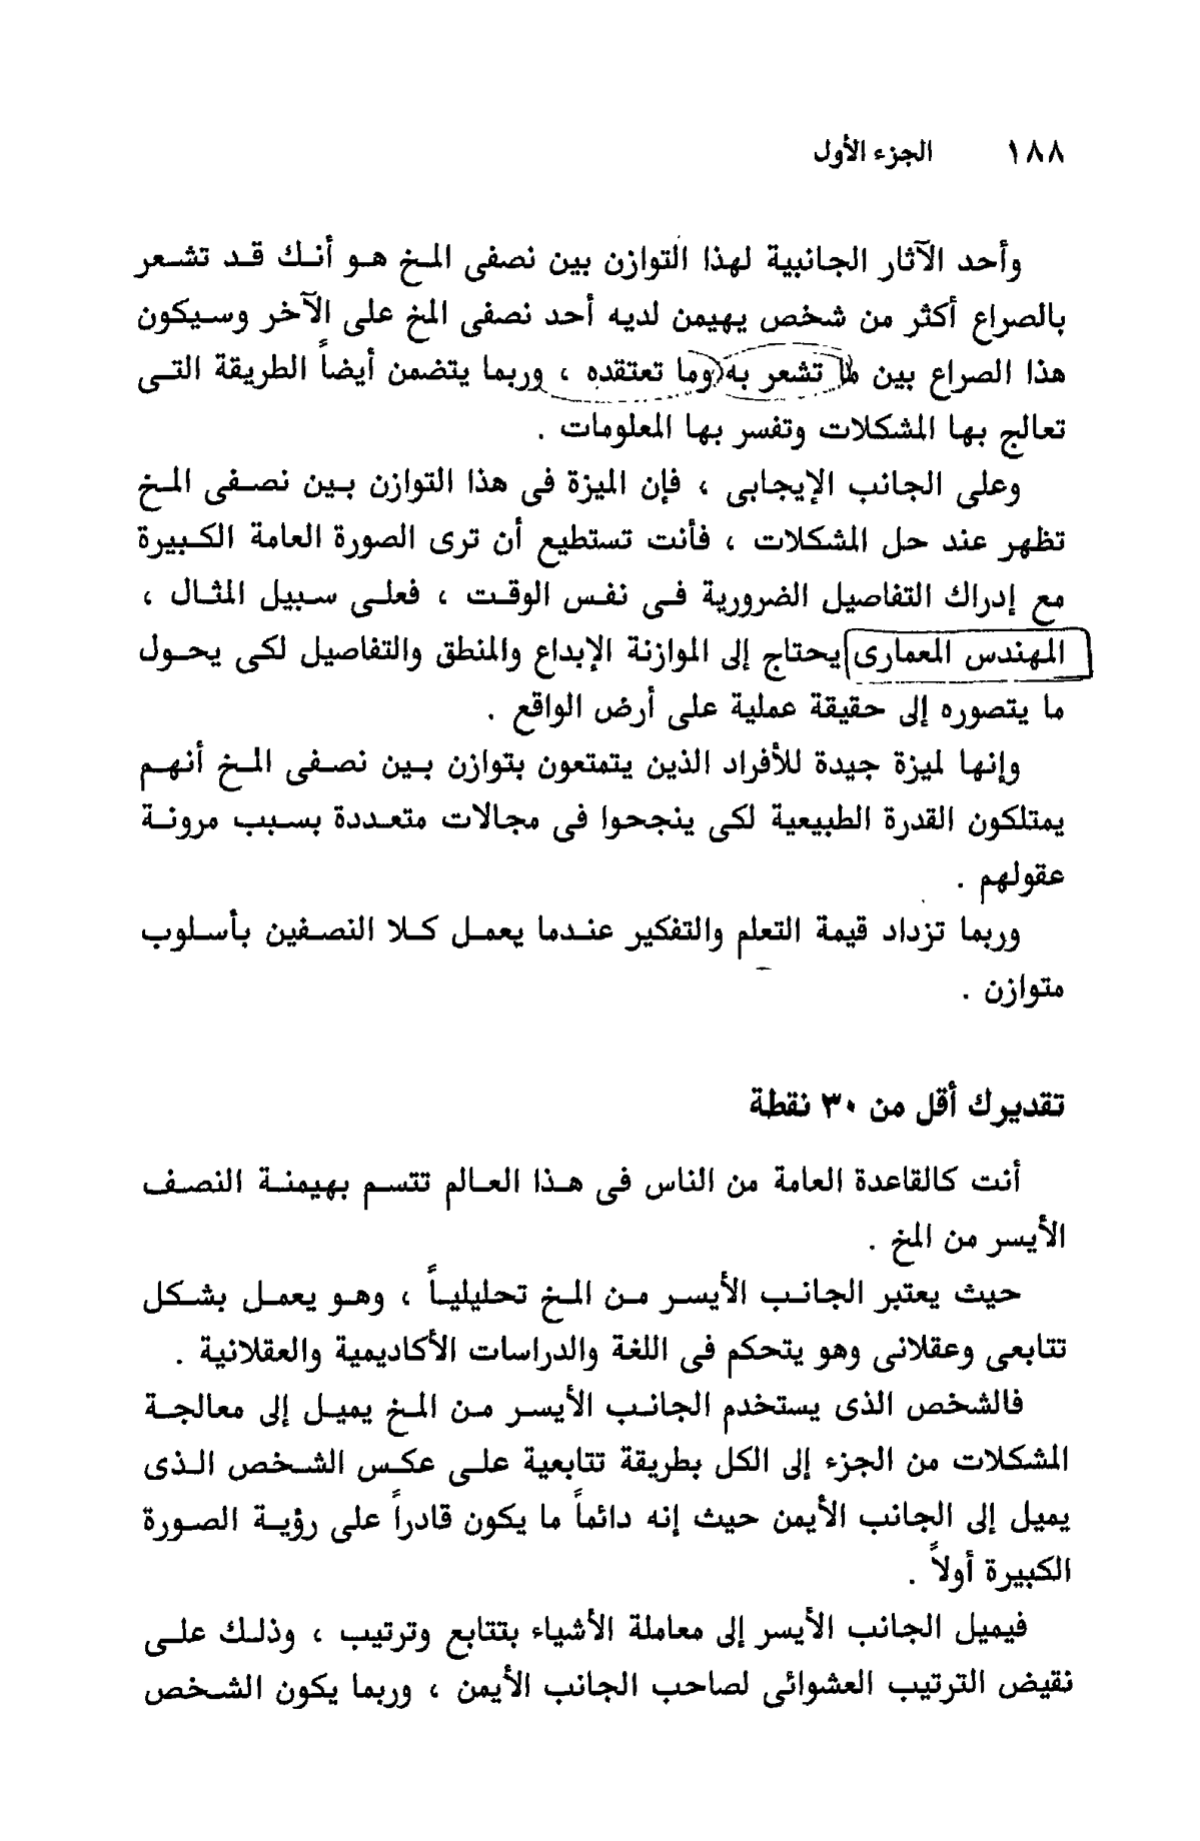 ١٨٨ الجزء الأول
وأحد الآثار الجانبية لهذا التوازن بين نصفى المخ هو أنك قد تشعر
بالصراع أكثر من شخص يهيمن لديه أحد نصفى المخ على الآخر وسيكون
هذا الصراع بين ما تشعر به وما تعتقده ، وربما يتضمن أيضاً الطريقة التى
تعالج بها المشكلات وتفسر بها المعلومات .
وعلى الجانب الإيجابى ، فإن الميزة فى هذا التوازن بين نصفى المخ
تظهر عند حل المشكلات ، فأنت تستطيع أن ترى الصورة العامة الكبيرة
مع إدراك التفاصيل الضرورية فى نفس الوقت ، فعلى سبيل المثال ،
المهندس المعمارى يحتاج إلى الموازنة الإبداع والمنطق والتفاصيل لكى يحول
ما يتصوره إلى حقيقة عملية على أرض الواقع .
وإنها لميزة جيدة للأفراد الذين يتمتعون بتوازن بين نصفى المخ أنهم
يمتلكون القدرة الطبيعية لكى ينجحوا فى مجالات متعددة بسبب مرونة
عقولهم .
وربما تزداد قيمة التعلم والتفكير عندما يعمل كلا النصفين بأسلوب
متوازن .
تقديرك أقل من ٣٠ نقطة
أنت كالقاعدة العامة من الناس فى هذا العالم تتسم بهيمنة النصف
الأيسر من المخ .
حيث يعتبر الجانب الأيسر من المخ تحليلياً ، وهو يعمل بشكل
تتابعى وعقلانى وهو يتحكم فى اللغة والدراسات الأكاديمية والعقلانية .
فالشخص الذى يستخدم الجانب الأيسر من المخ يميل إلى معالجة
المشكلات من الجزء إلى الكل بطريقة تتابعية على عكس الشخص الذى
يميل إلى الجانب الأيمن حيث إنه دائماً ما يكون قادراً على رؤية الصورة
الكبيرة أولاً .
فيميل الجانب الأيسر إلى معاملة الأشياء بتتابع وترتيب ، وذلك على
نقيض الترتيب العشوائى لصاحب الجانب الأيمن ، وربما يكون الشخص